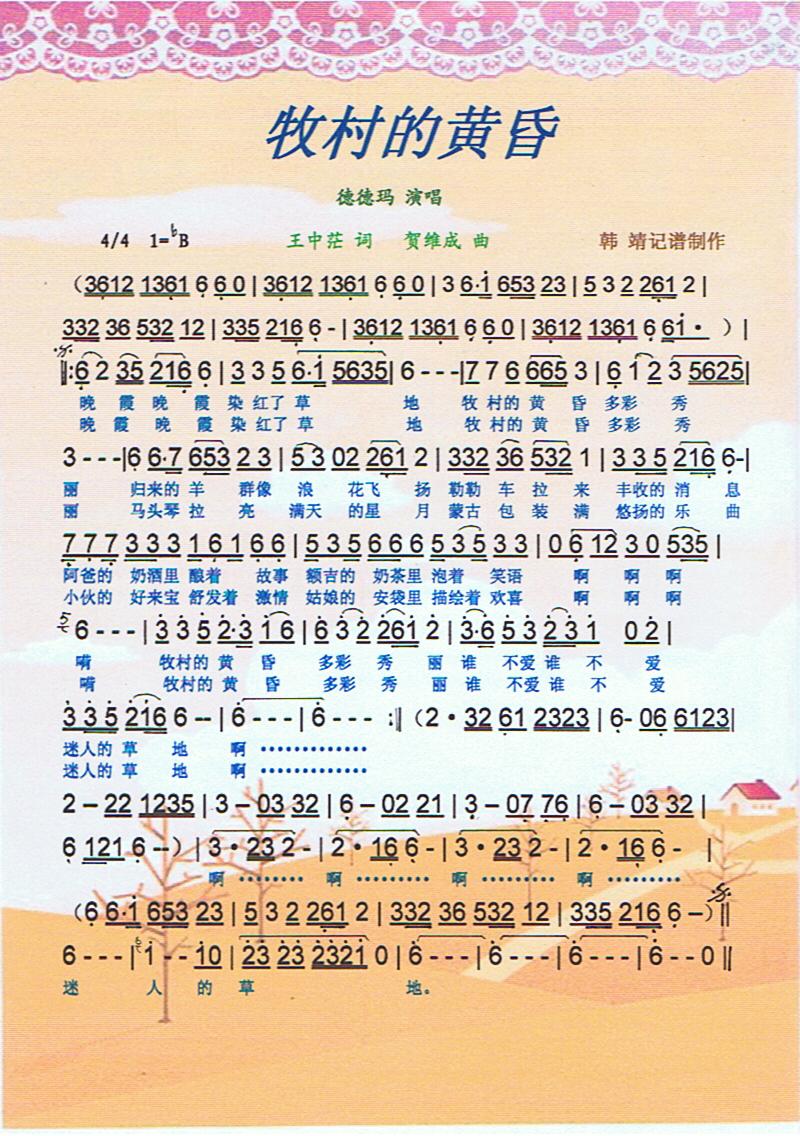 牧村的黄昏
德德玛 演唱
4/4 1=♭B 王中茳 词 贺维成 曲 韩 靖记谱制作
(3612 1361 6 6 0 | 3612 1361 6 6 0 | 3 6·1 653 23 | 5 3 2 261 2 |
332 36 532 12 | 335 216 6 - | 3612 1361 6 6 0 | 3612 1361 6 61· ) |
‖: 6 2 35 216 6 | 3 3 5 6·1 5635 | 6 - - - | 7 7 6 665 3 | 6 1 2 3 5625 |
晚 霞 晚 霞 染 红了 草 地 牧 村的 黄 昏 多彩 秀
晚 霞 晚 霞 染 红了 草 地 牧 村的 黄 昏 多彩 秀
3 - - - | 6 6·7 653 2 3 | 5 3 02 261 2 | 332 36 532 1 | 3 3 5 216 6 - |
丽 归来的 羊 群像 浪 花飞 扬 勒勒 车 拉 来 丰收的 消 息
丽 马头琴 拉 亮 满天 的星 月 蒙古 包 装 满 悠扬的 乐 曲
7 7 7 3 3 3 1 6 1 6 6 | 5 3 5 6 6 6 5 3 5 3 3 | 0 6 12 3 0 535 |
阿爸的 奶酒里 酿着 故事 额吉的 奶茶里 泡着 笑语 啊 啊 啊
小伙的 好来宝 舒发着 激情 姑娘的 安袋里 描绘着 欢喜 啊 啊 啊
6 - - - | 3 3 5 2·3 1 6 | 6 3 2 261 2 | 3·6 5 3 2 3 1 0 2 |
嗬 牧村的 黄 昏 多彩 秀 丽 谁 不爱 谁 不 爱
嗬 牧村的 黄 昏 多彩 秀 丽 谁 不爱 谁 不 爱
3 3 5 216 6 -- | 6 - - - | 6 - - - :‖ (2· 32 61 2323 | 6- 06 6123 |
迷人的 草 地 啊 ··············
迷人的 草 地 啊 ··············
2 – 22 1235 | 3 – 03 32 | 6 – 02 21 | 3 – 07 76 | 6 – 03 32 |
6 121 6 --) | 3· 23 2 - | 2· 16 6 - | 3· 23 2 - | 2· 16 6 - |
啊 ········· 啊 ········· 啊 ········· 啊 ·········
(6 6·1 653 23 | 5 3 2 261 2 | 332 36 532 12 | 335 216 6 –) ‖
6 - - | 1 - - 10 | 23 23 2321 0 | 6 - - - | 6 - - - | 6 - - - | 6 - - 0 ‖
迷 人 的 草 地。